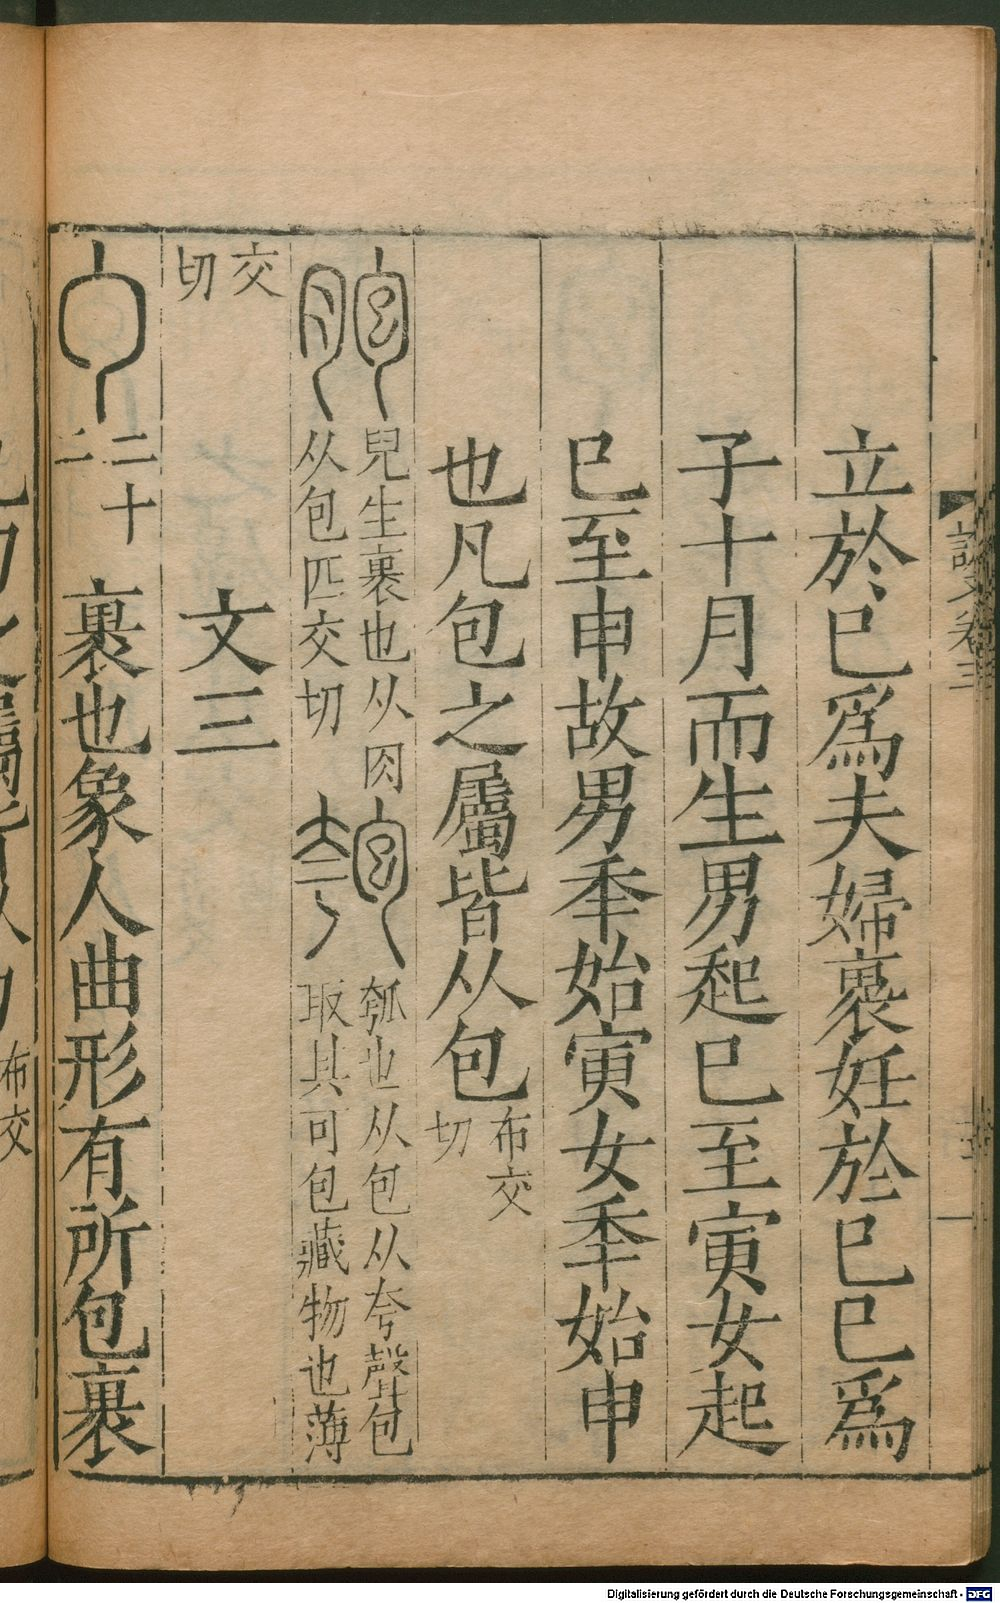 立於巳爲夫婦褢妊於巳巳爲
子十月而生男起巳至寅女起
巳至申故男秊始寅女秊始申
也凡包之屬皆从包布交切
胞兒生裹也从肉从包匹交切
匏瓠也从包从夸聲包取其可包藏物也薄
交切
文三
二十二
勹裹也象人曲形有所包裹
說文卷三
布交
Digitalisierung gefördert durch die Deutsche Forschungsgemeinschaft - DFG